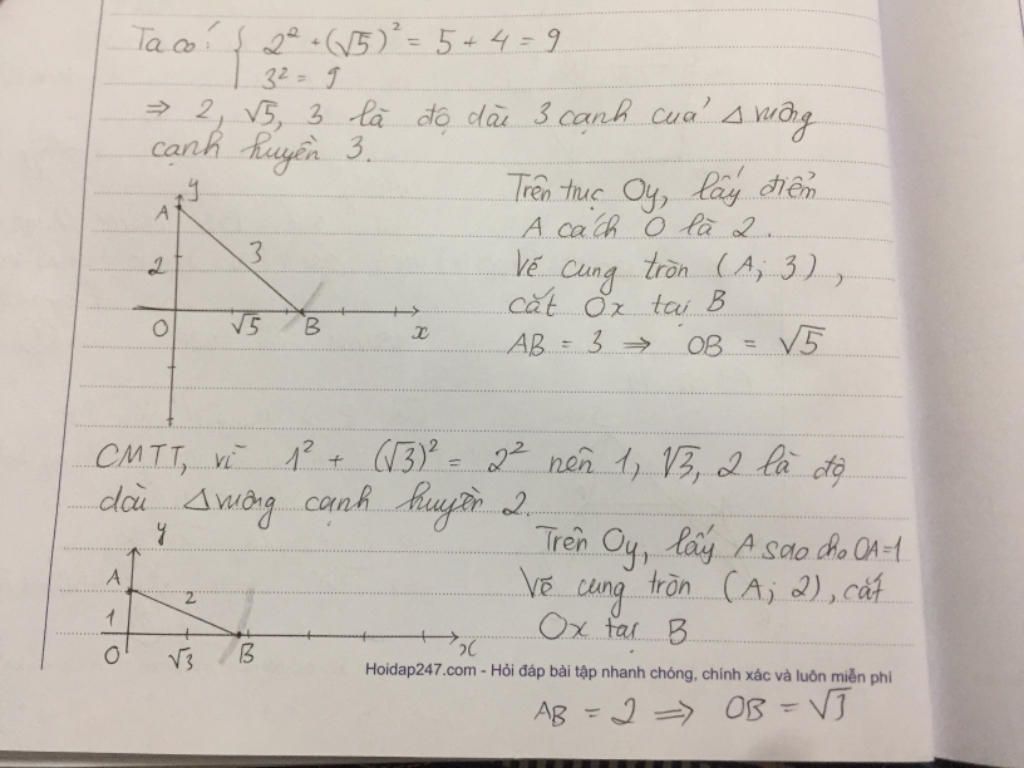 Ta có: { 2² + (√5)² = 5 + 4 = 9
3² = 9
⇒ 2, √5, 3 là độ dài 3 cạnh của Δ vuông
cạnh huyền 3.
y
A
3
2
O
√5
B
x
Trên trục Oy, lấy điểm
A cách O là 2.
Vẽ cung tròn (A; 3),
cắt Ox tại B
AB = 3 ⇒ OB = √5
CMTT, vì 1² + (√3)² = 2² nên 1, √3, 2 là độ
dài Δ vuông cạnh huyền 2.
y
A
2
1
O
√3
B
x
Trên Oy, lấy A sao cho OA=1
Vẽ cung tròn (A; 2), cắt
Ox tại B
Hoidap247.com - Hỏi đáp bài tập nhanh chóng, chính xác và luôn miễn phí
AB = 2 ⇒ OB = √3